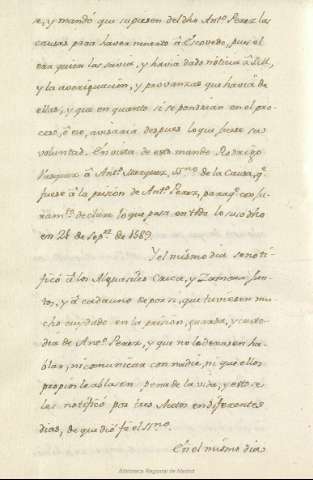 se, y mandó que supiesen del dho Antº Perez las
causas para haver muerto á Escovedo, pues el
era quien las savia, y havia dado noticia á S.M.
y la averiguacion, y provanzas que havia de
ellas, y que en quanto si se pondrian en el pro-
ceso, ó no, avisaria despues lo que fuese su
voluntad. En vista de esto mando Rodrigo
Vazquez á Antº Marquez, SSnº de la Causa, qe
fuese á la prision de Antº Perez, para qe con ju-
ramto declare lo que pasa en todo lo susodho
en 21 de Sepre de 1589.
Y el mismo dia se noti-
ficó á los Alguaciles Erizca, y Zamora, jun-
tos, y á cada uno de por si, que tuviesen mu-
cho cuydado en la prision, guarda, y custo-
dia de Antº Perez, y que no le dexasen ha-
blar, ni comunicar con nadie, ni que ellos
propios le ablasen pena de la vida, y esto se
les notificó por tres Autos en diferentes
dias, de que dió fé el SSnº.
En el mismo dia
Biblioteca Regional de Madrid